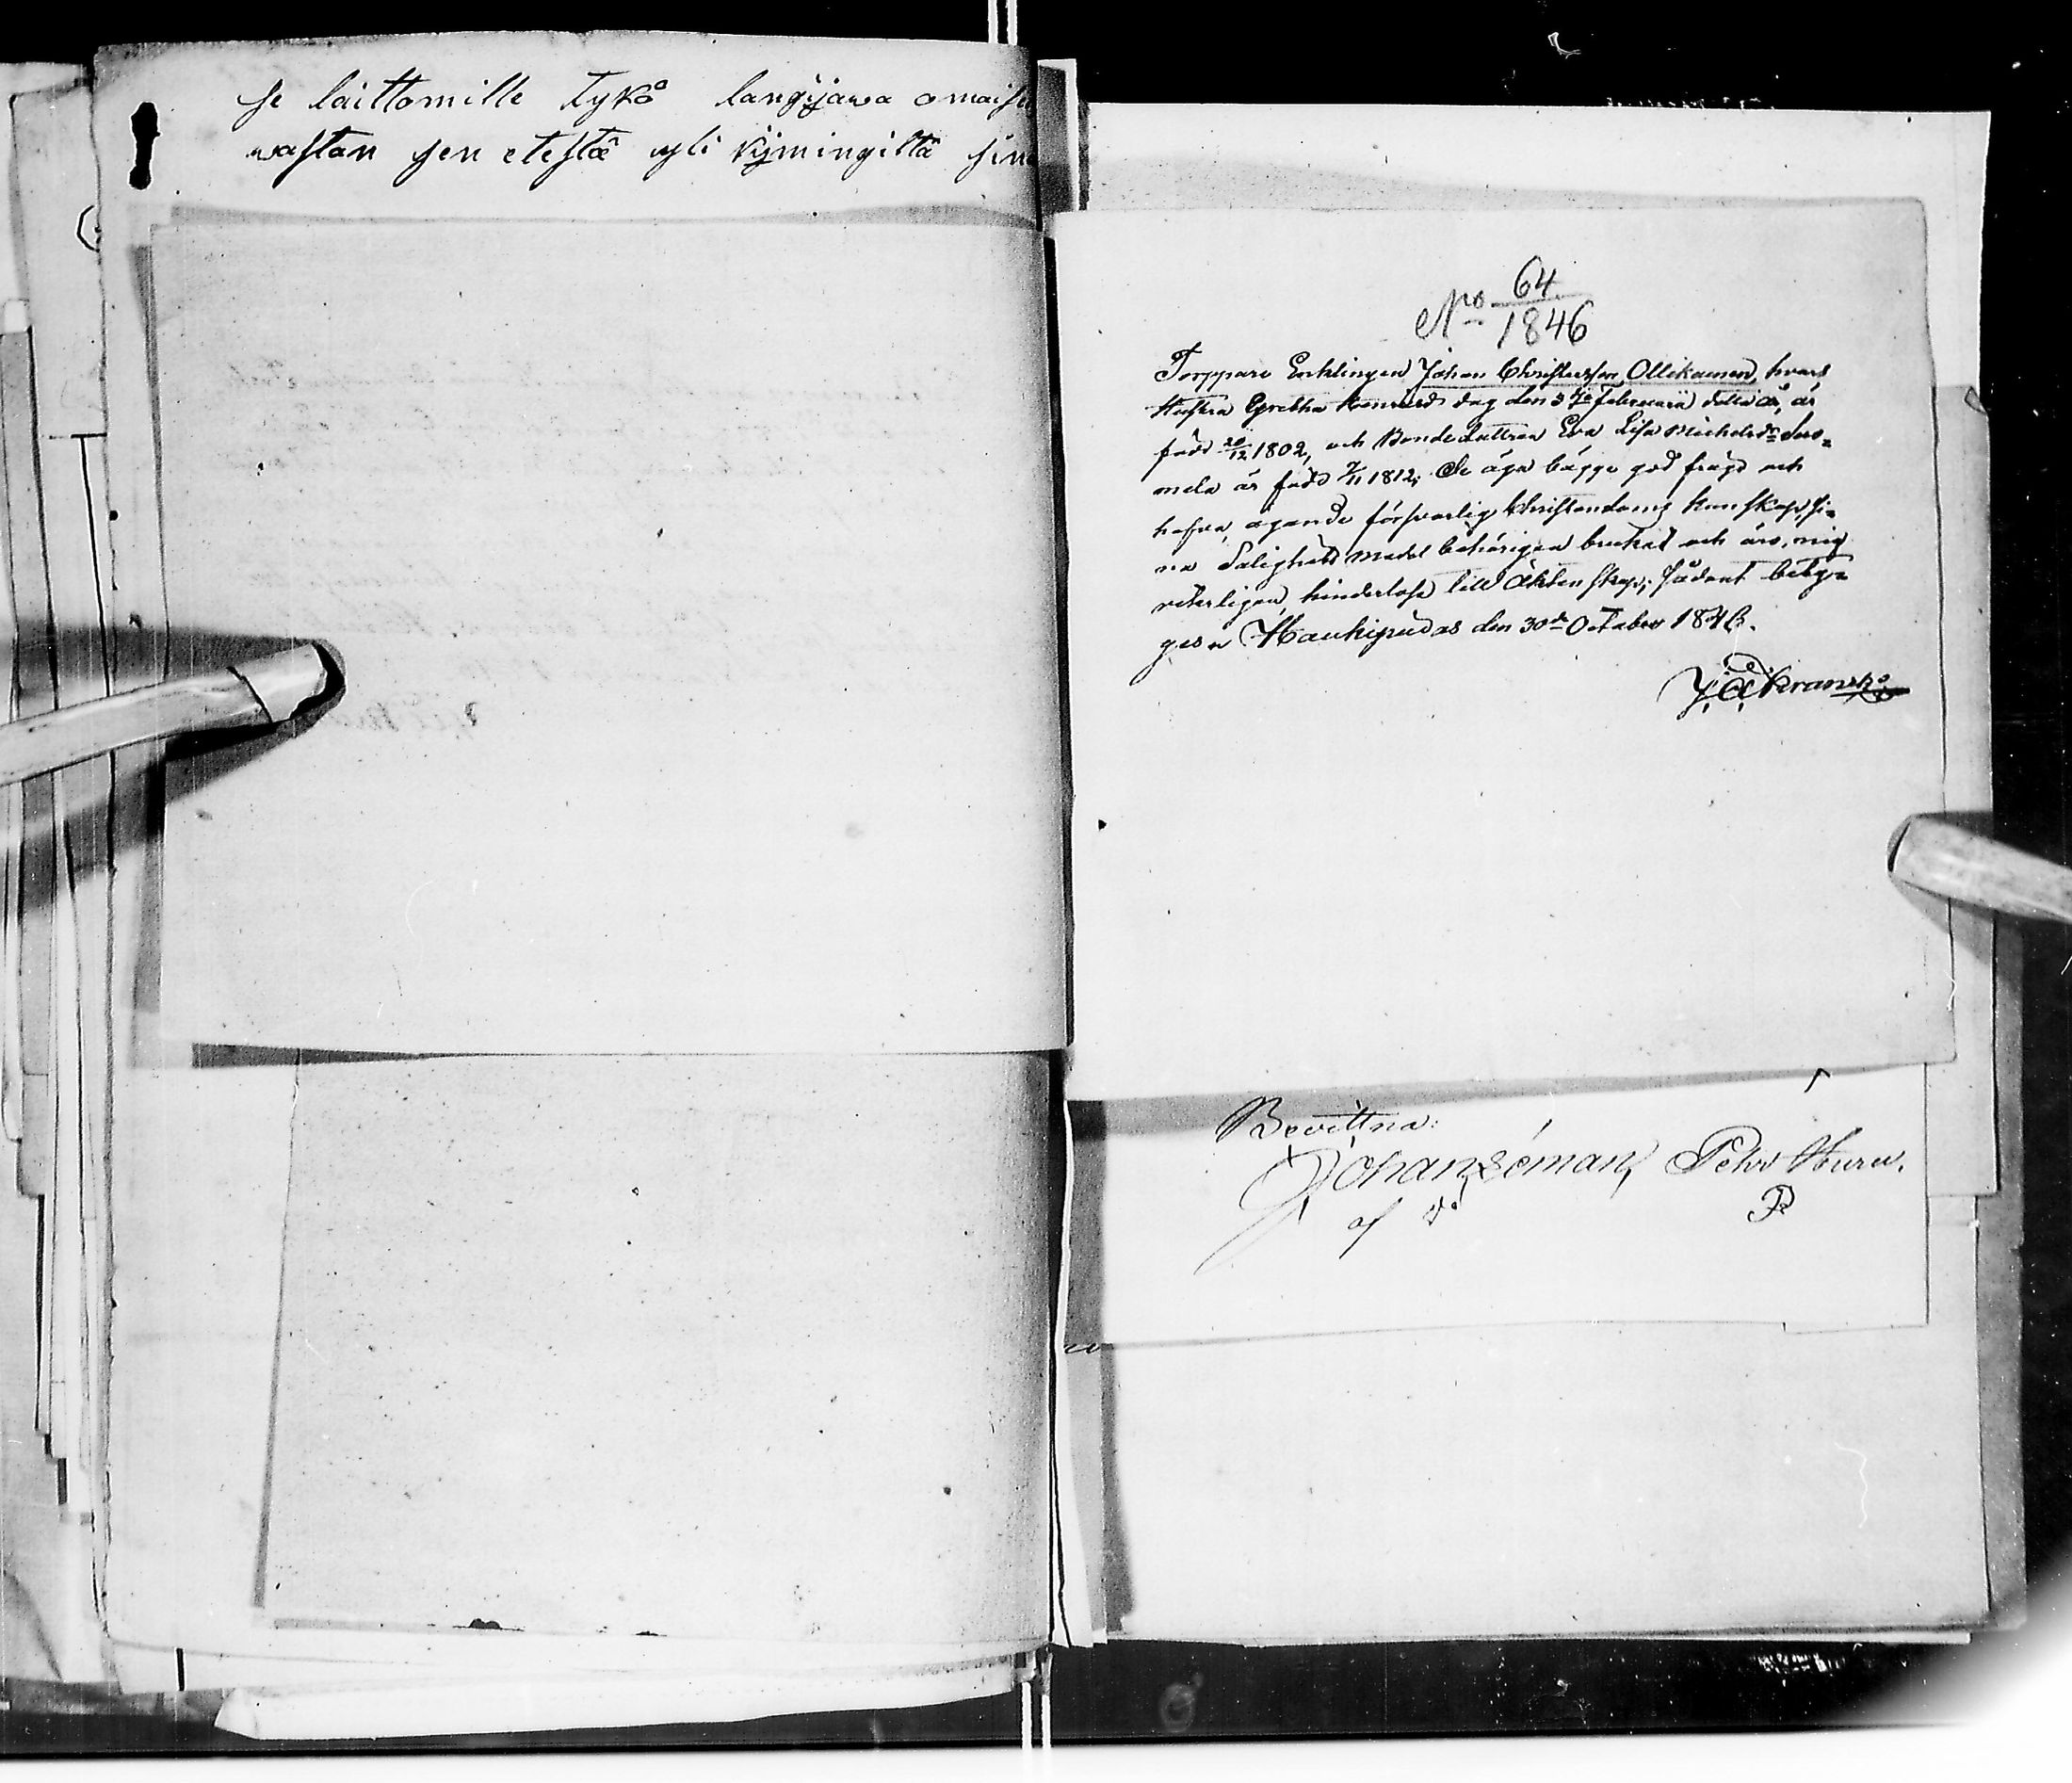 se laittomille tykö langijawa omaisu
wastan sen etestä yli kijmingiltä sin
No 64
1846
Torppare Encklingen Johan Christersson Ollikainen, hvars
Hustru Gretha dag den 3dje Februarii detta år, är
född 20/12 1802, och Bondedattren Eva Lisa Michelsdr Suo-
mela är född 7/11 1812; De äga bägge god frägd och
hafva, ägande försvarlig Christendoms kunskap, si-
na Salighets medel behörigen brukat och äro, mig
veterligen, hinderlöse till Äktenskap; sådant bety-
gas i Haukipudas den 30de October 1846.
Bevittna:
Johan Pehr
af